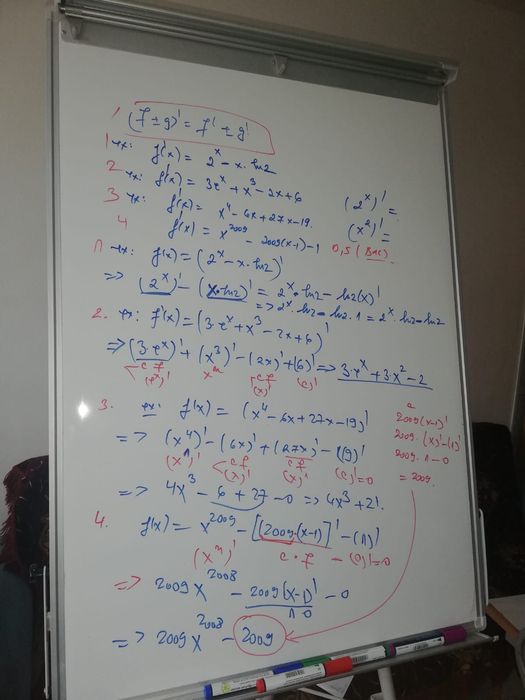 (f ± g)' = f' ± g'
1 ex: f(x) = 2^x - x · ln2
2 ex: f(x) = 3e^x + x^3 - 2x + 6
3 ex: f(x) = x^4 - 6x + 27x - 19.
4 f(x) = x^2009 - 2009(x-1) - 1
(2^x)' =
(x^2)' =
0,5 (BAC)
1 ex: f'(x) = (2^x - x · ln2)'
=> (2^x)' - (x · ln2)' = 2^x · ln2 - ln2(x)'
=> 2^x · ln2 - ln2 · 1 = 2^x · ln2 - ln2
2. ex: f'(x) = (3 · e^x + x^3 - 2x + 6)'
=> (3 · e^x)' + (x^3)' - (2x)' + (6)' => 3 · e^x + 3 · x^2 - 2
c f x^n c f (c)'
(e^x)' (x)'
3. ex: f'(x) = (x^4 - 6x + 27x - 19)'
=> (x^4)' - (6x)' + (27x)' - (19)'
(x^n)' c f c f (c)' = 0
(x)' (x)'
=> 4x^3 - 6 + 27 - 0 => 4x^3 + 21.
2009(x-1)'
2009 · (x)' - (1)'
2009 · 1 - 0
= 2009.
4. f'(x) = x^2009 - [(2009 · (x-1)]' - (1)'
(x^n)' c · f - (c)' = 0
=> 2009x^2008 - 2009(x-1)' - 0
1 - 0
=> 2009x^2008 - 2009